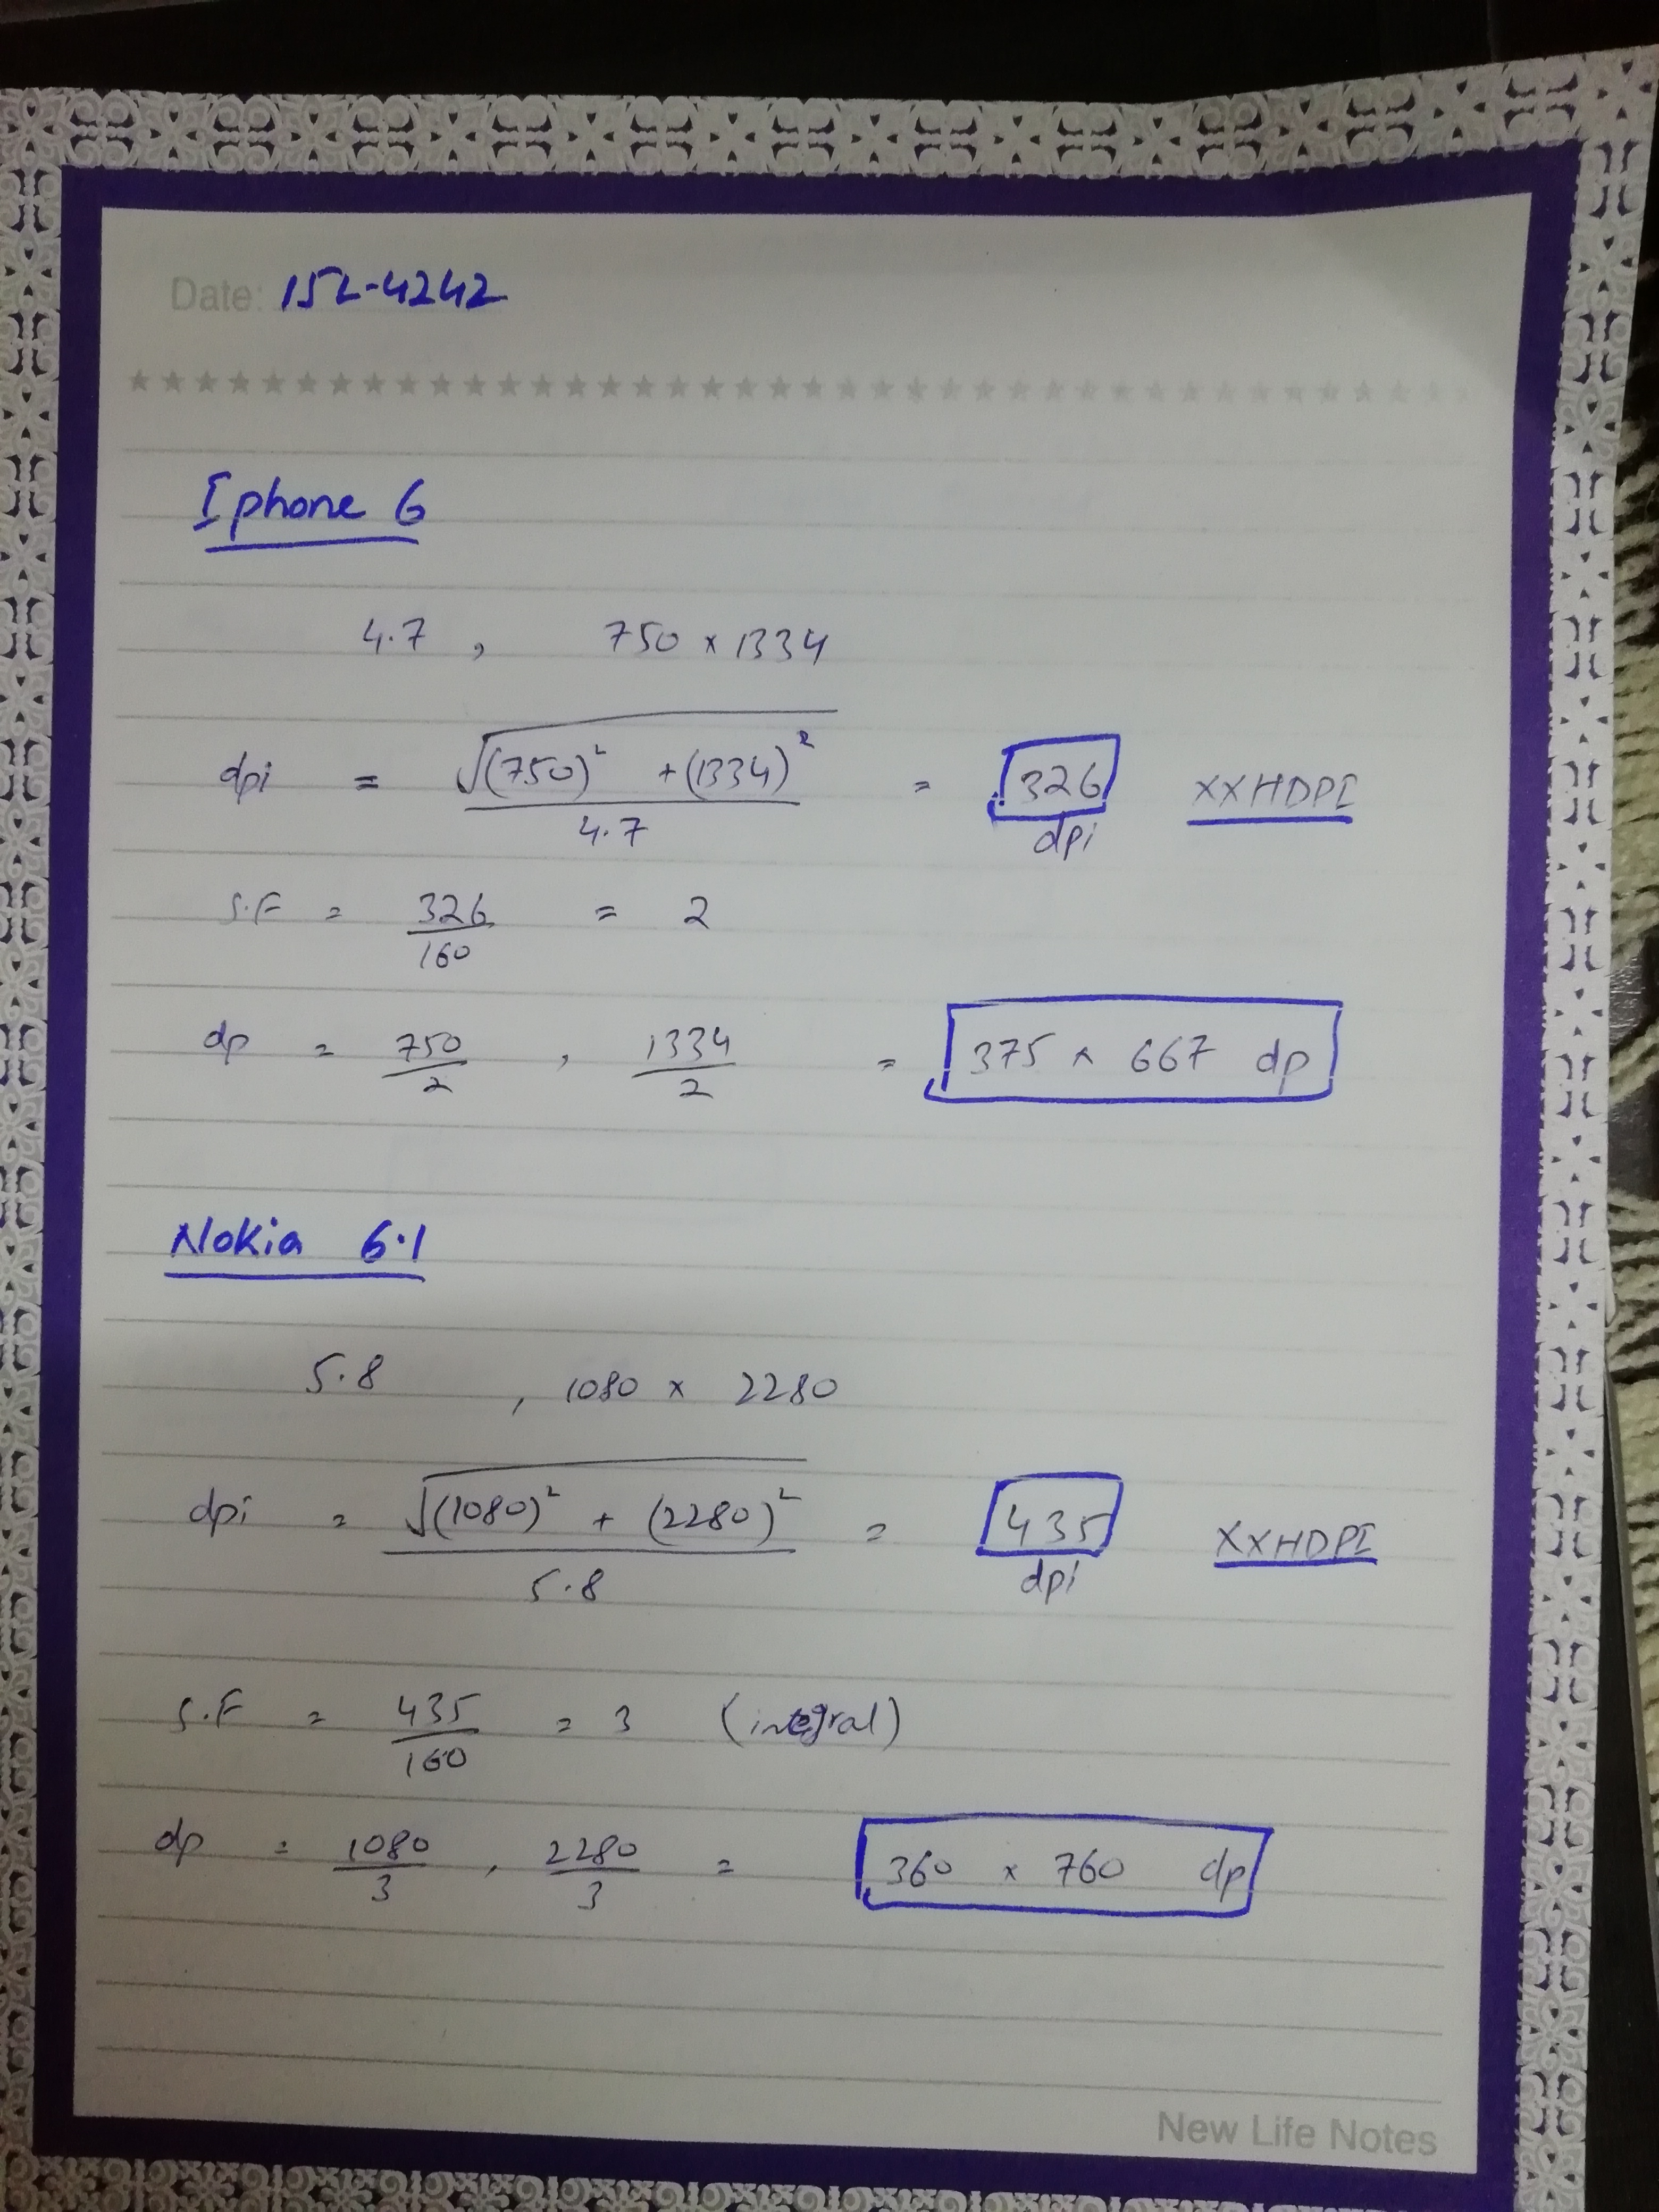 Date: 15L-4242
Iphone 6
4.7 , 750 x 1334
dpi = √(750)² + (1334)² / 4.7 = 326 dpi XXHDPI
S.F = 326/160 = 2
dp = 750/2 , 1334/2 = 375 x 667 dp
Nokia 6.1
5.8 , 1080 x 2280
dpi = √(1080)² + (2280)² / 5.8 = 435 dpi XXHDPI
S.F = 435/160 = 3 (integral)
dp = 1080/3 , 2280/3 = 360 x 760 dp
New Life Notes